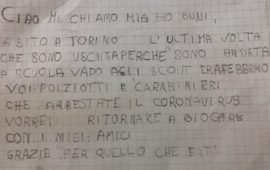 CIAO MI CHIAMO MIA HO 6 UNI,
ABITO A TORINO L'ULTIMA VOLTA
CHE SONO USCITA PERCHÉ SONO ANDATA
A SCUOLA VADO AGLI SCOUT ERA FEBBRAIO
VOI POLIZIOTTI E CARABINIERI
CHE ARRESTATE IL CORONAVIRUS
VORREI RITORNARE A GIOCARE
CON I MIEI AMICI
GRAZIE PER QUELLO CHE